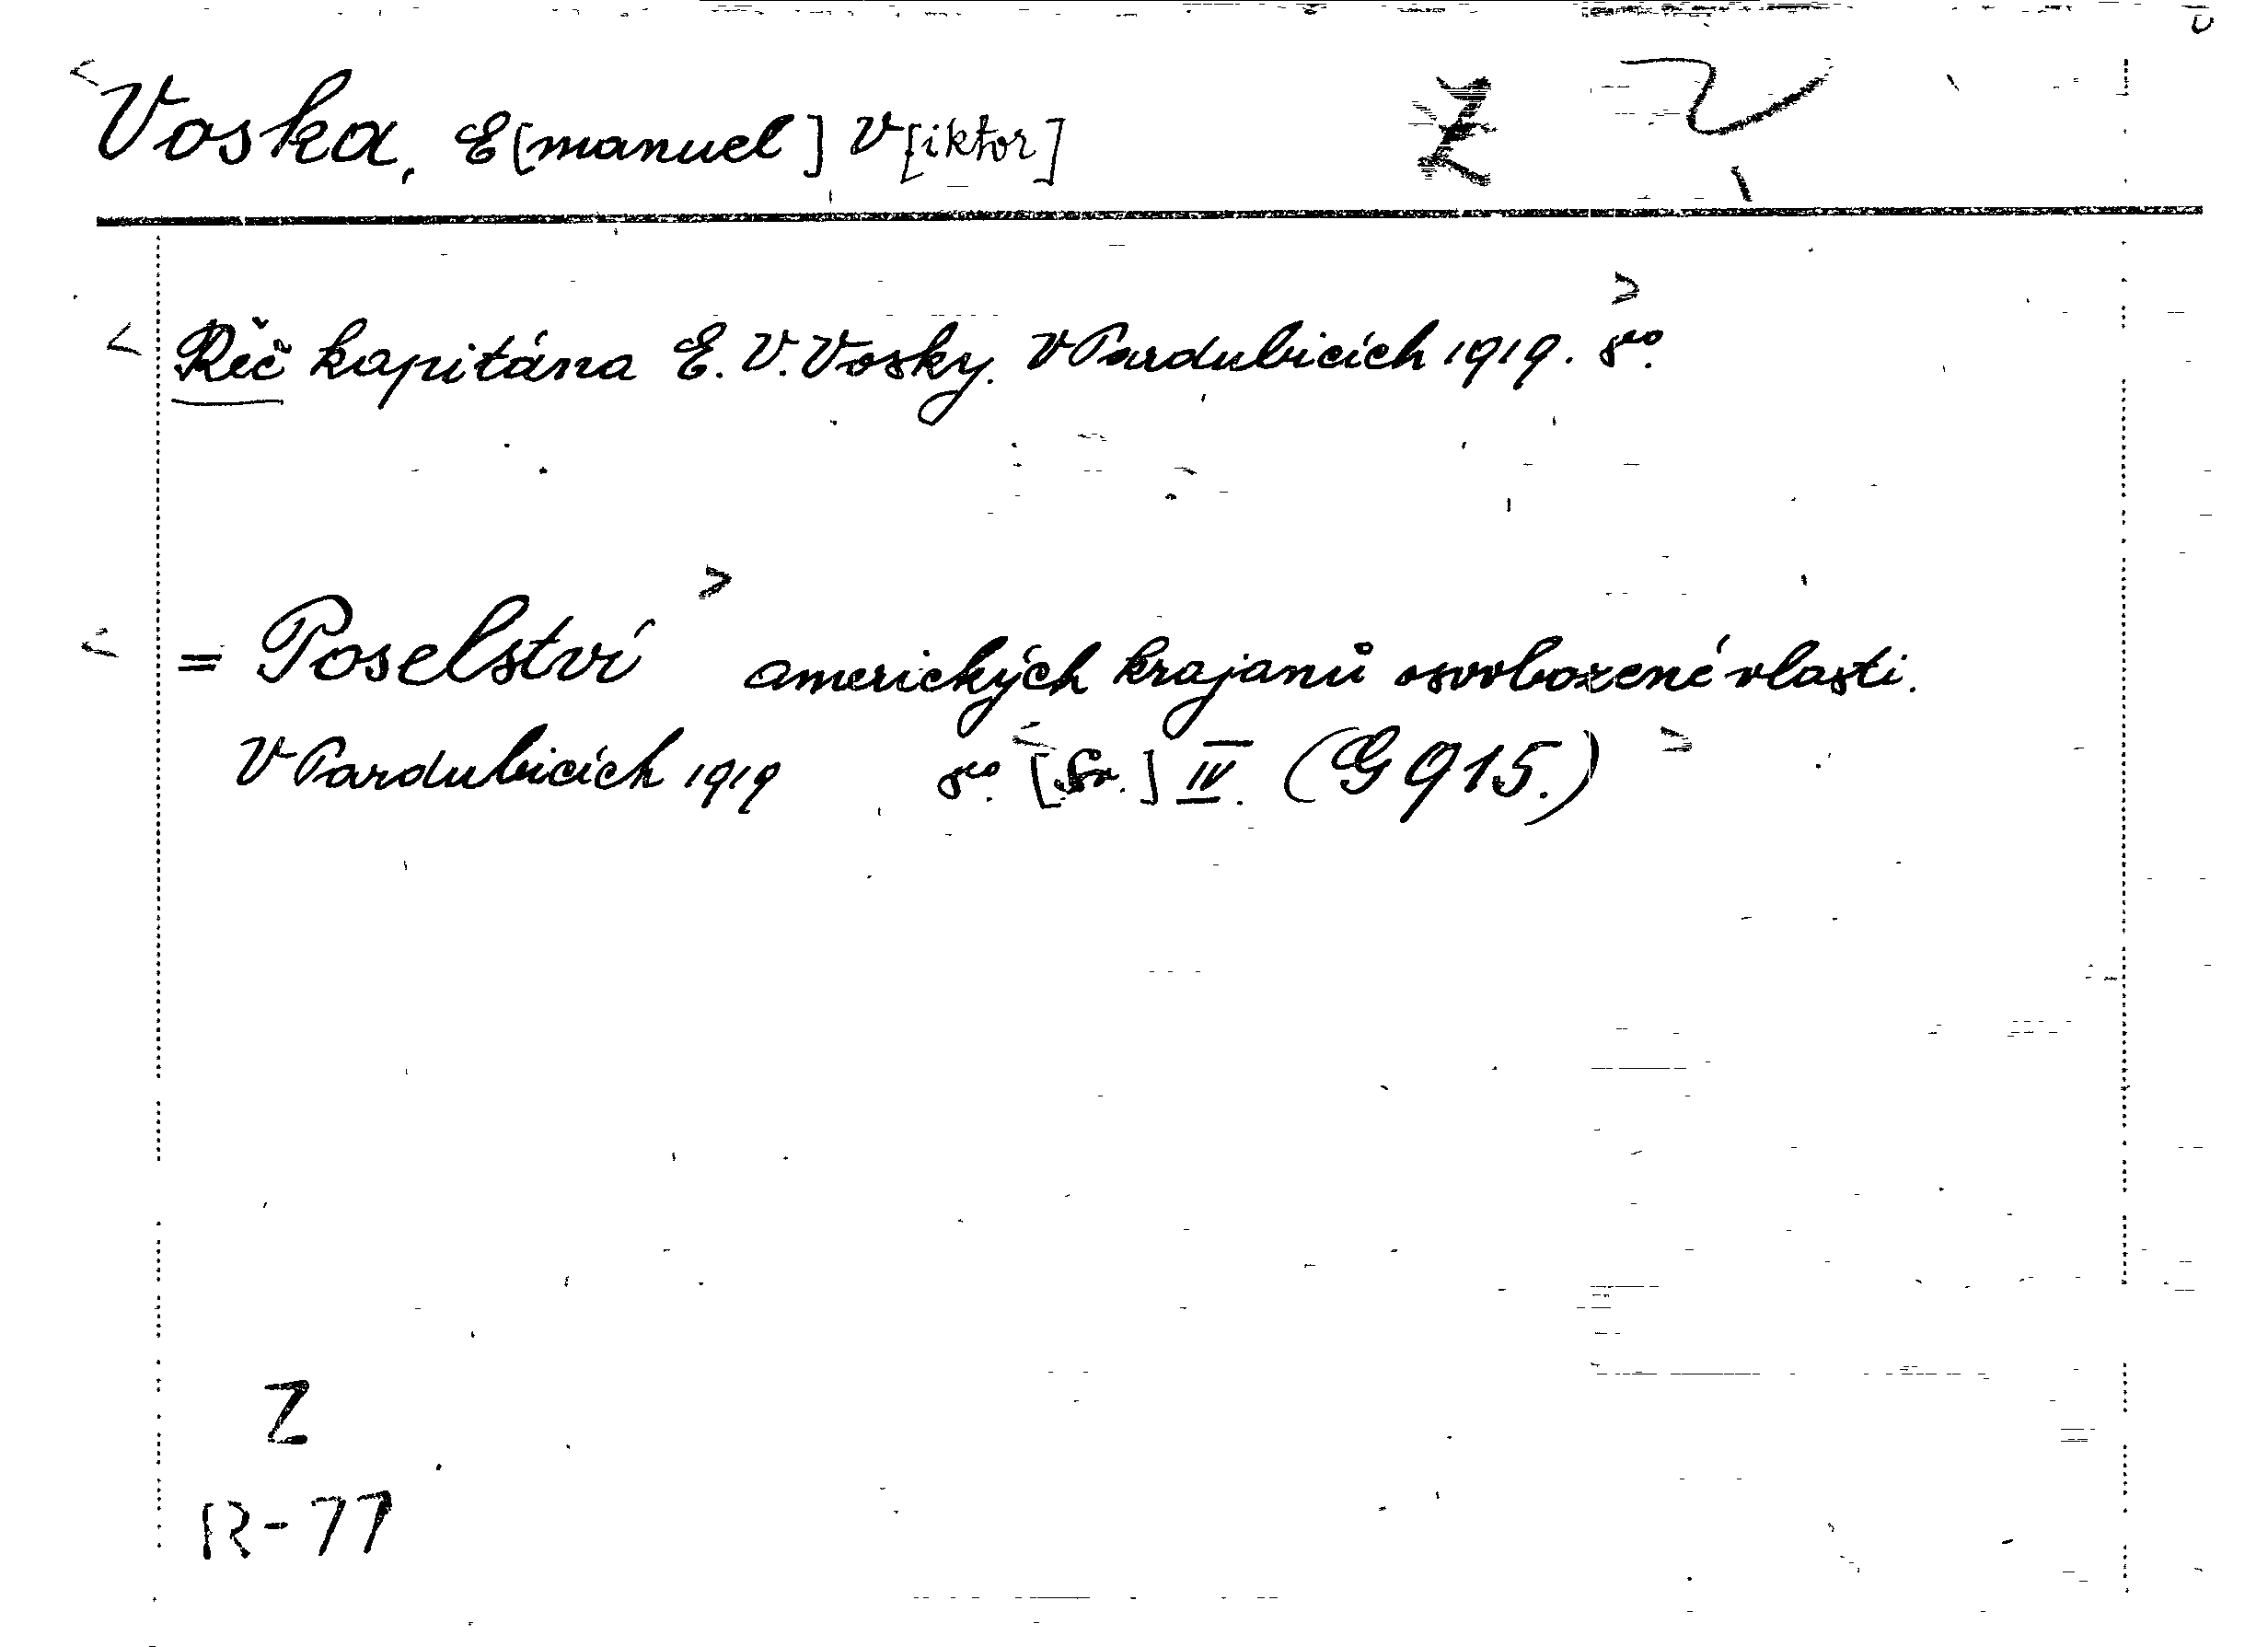 Voska, E[manuel] V[iktor] Z V
Řeč kapitána E. V. Vosky. V Pardubicích 1919. 8º.
= Poselství amerických krajanů osvobozené vlasti.
V Pardubicích 1919 8º. [Sv.] IV. (G 915.)
Z
R-77